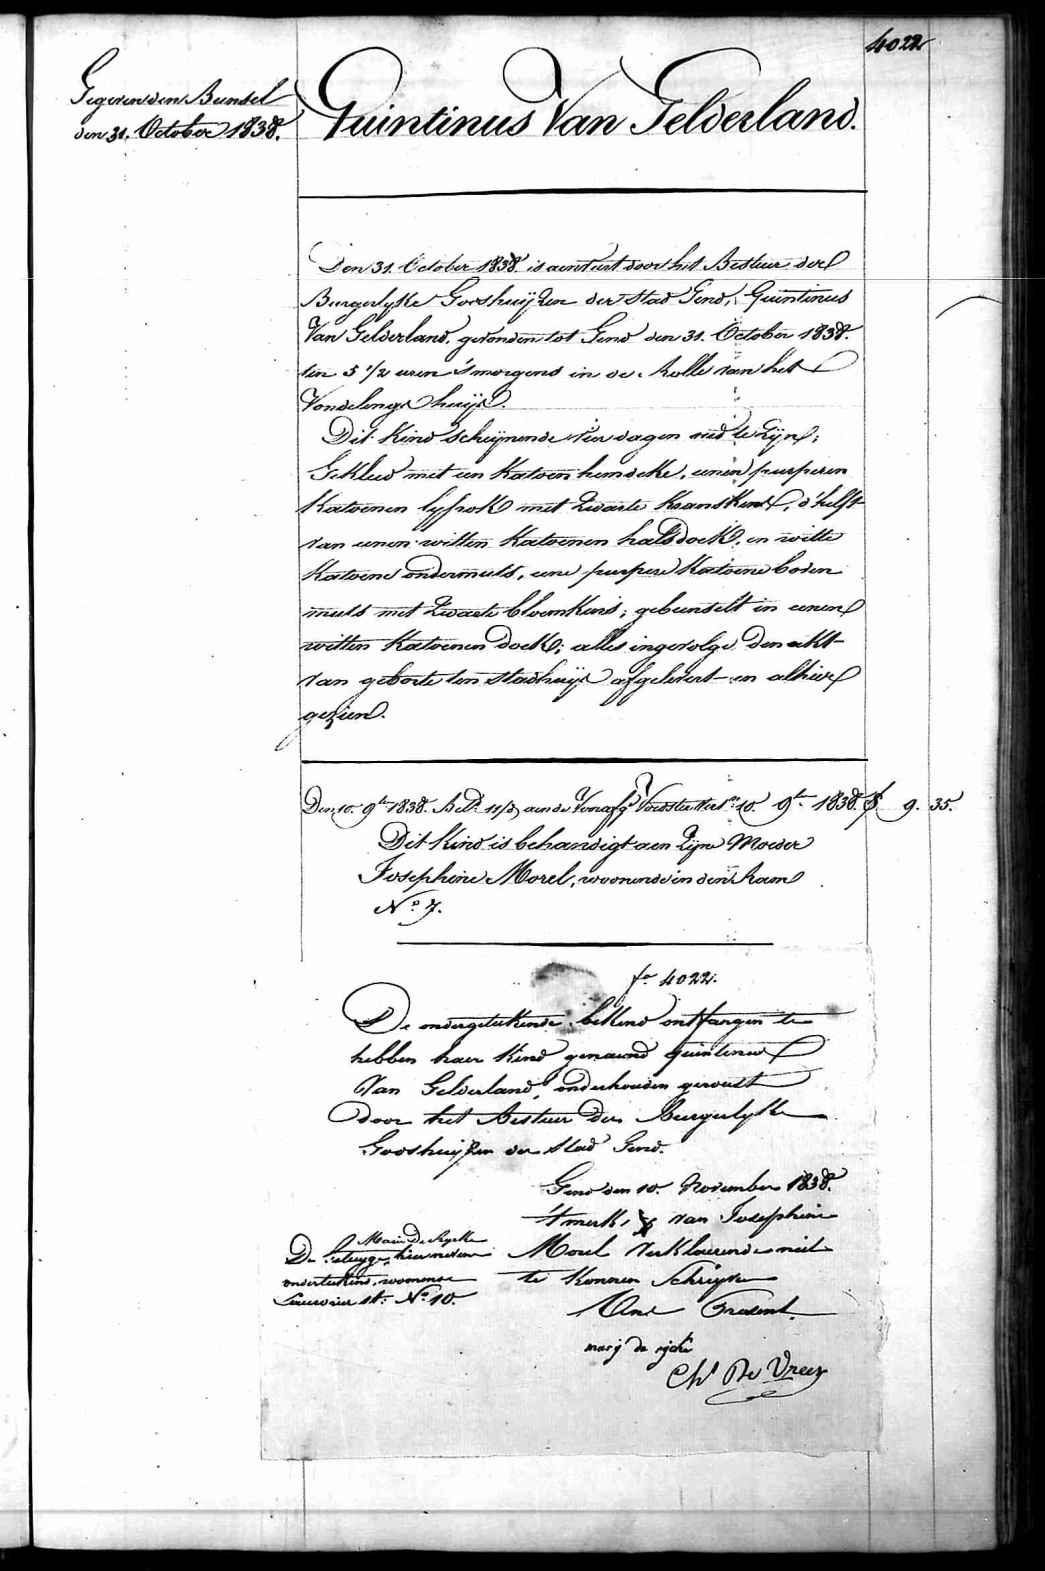 4022
Gegeven den Bunsel
den 31. October 1838.
Quintinus Van Gelderland.
Den 31. October 1838. is aenveirt door het Bestuer der
Burgerlyke Godshuyzen der Stad Gend, Quintinus
Van Gelderland, gevonden tot Gend den 31. October 1838.
ten 5 1/2 uren 'smorgens in de Rolle van het
Vondelings huys.
Dit kind schynende vier dagen oud te zyn;
Gekleed met een katoen hemdeke, eenen purperen
katoenen lyfrok met zwarte kranskens, d'helft
van eenen witten katoenen halsdoek, en witte
katoene ondermuts, eene purpere katoene boven
muts met zwarte bloemkens; gebunselt in eenen
witten katoenen doek; alles ingevolge den akt
van geboorte ten stadhuys afgelevert en alhier
gezien.
Den 10. 9bre 1838. Betd. 11/d aen de Voorafg. Voedster tot 10. 9bre 1838. f 9. 35.
Dit kind is behandigt aen zyne Moeder
Josephine Morel, woonende in den Ram
No. 7.
fo 4022.
De ondergeteekende bekend ontfangen te
hebben haer kind genaemd Quintinus
Van Gelderland, onderhouden geweest
door het Bestuer der Burgerlyke
Godshuyzen der Stad Gend.
Gend den 10. November 1838.
't merk, X van Josephine
Morel verklaerende niet
te konnen Schryven
Marie De Rycke
De Getuyge, hier neven
ondertekend, woonende
st. No 10.
mary de rycke
Chs De Vreese